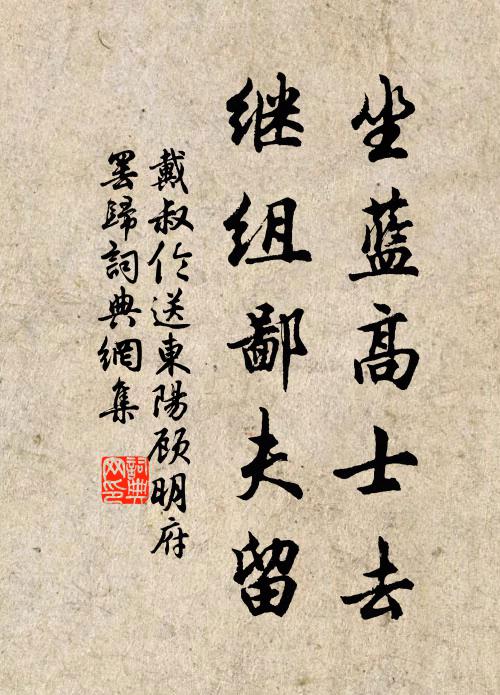 坐蓝高士去
继组鄙夫留
戴叔伦送東陽顾明府
罢歸詞典網集
詞典网印